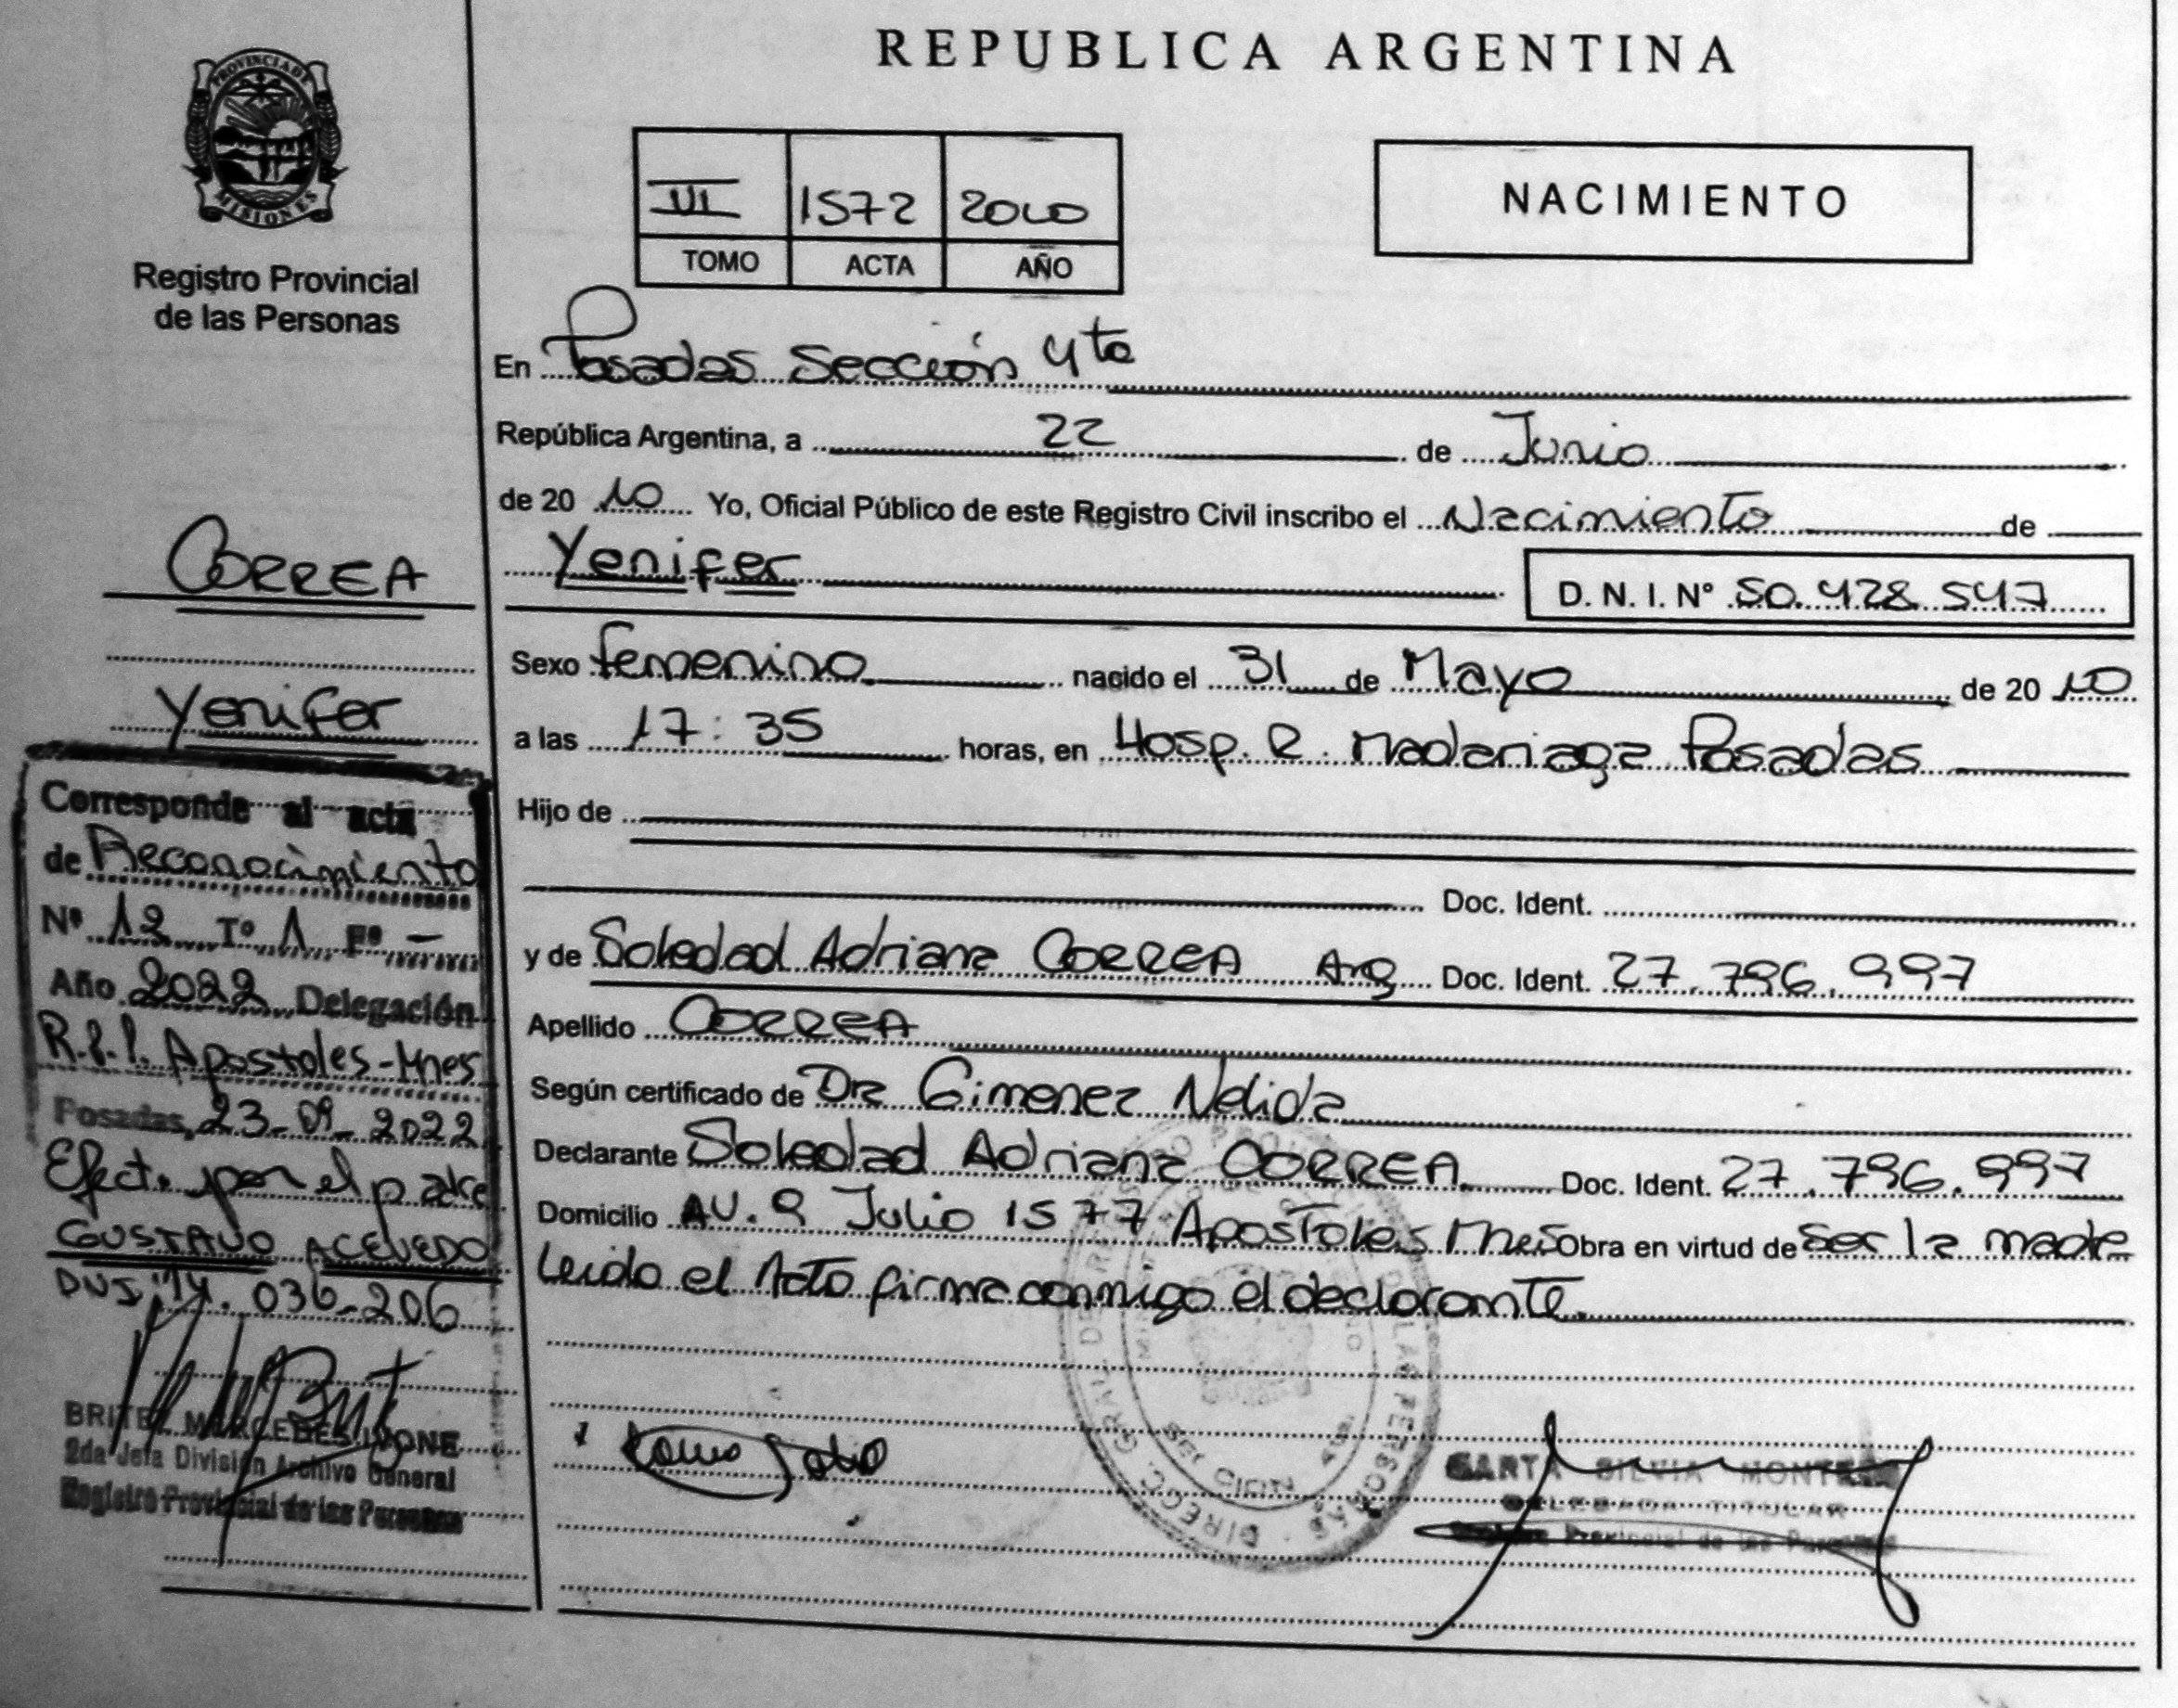 REPUBLICA ARGENTINA
PROVINCIA DE
MISIONES
Registro Provincial
de las Personas
III 1572 2010
TOMO ACTA AÑO
NACIMIENTO
En Posadas Sección 4ta
República Argentina, a 22 de Junio
de 20 10 Yo, Oficial Público de este Registro Civil inscribo el Nacimiento de
Yenifer D. N. I. Nº 50.428.547
Sexo femenino nacido el 31 de Mayo de 20 10
a las 17:35 horas, en Hosp. R. Madariaga Posadas
Hijo de
Doc. Ident.
y de Soledad Adriana CORREA Arg Doc. Ident. 27.796.997
Apellido CORREA
Según certificado de Dra Gimenez Nelida
Declarante Soledad Adriana CORREA Doc. Ident. 27.796.997
Domicilio AV. 9 Julio 1577 Apostoles Mnes Obra en virtud de ser la madre
leido el Acto firma conmigo el declarante.
CORREA
Yenifer
Corresponde al acta
de Reconocimiento
Nº 12 Tº 1 Fº -
Año 2022 Delegación
R.P.P. Apostoles-Mnes
Posadas, 23-09-2022
Efect. por el padre
GUSTAVO ACEVEDO
DNI 14.036.206
BRITEZ MERCEDES IVONE
2da Jefa División Archivo General
Registro Provincial de las Personas
SILVIA MONTE
DELEGADA TITULAR
Registro Provincial de las Personas